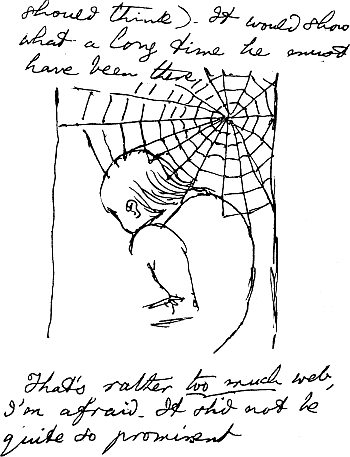 should think). It would show
what a long time he must
have been there,
That's rather too much web,
I'm afraid. It shd not be
quite so prominent